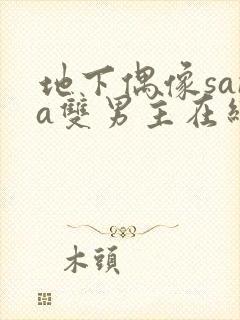 地下偶像sa
a雙男主在
木頭